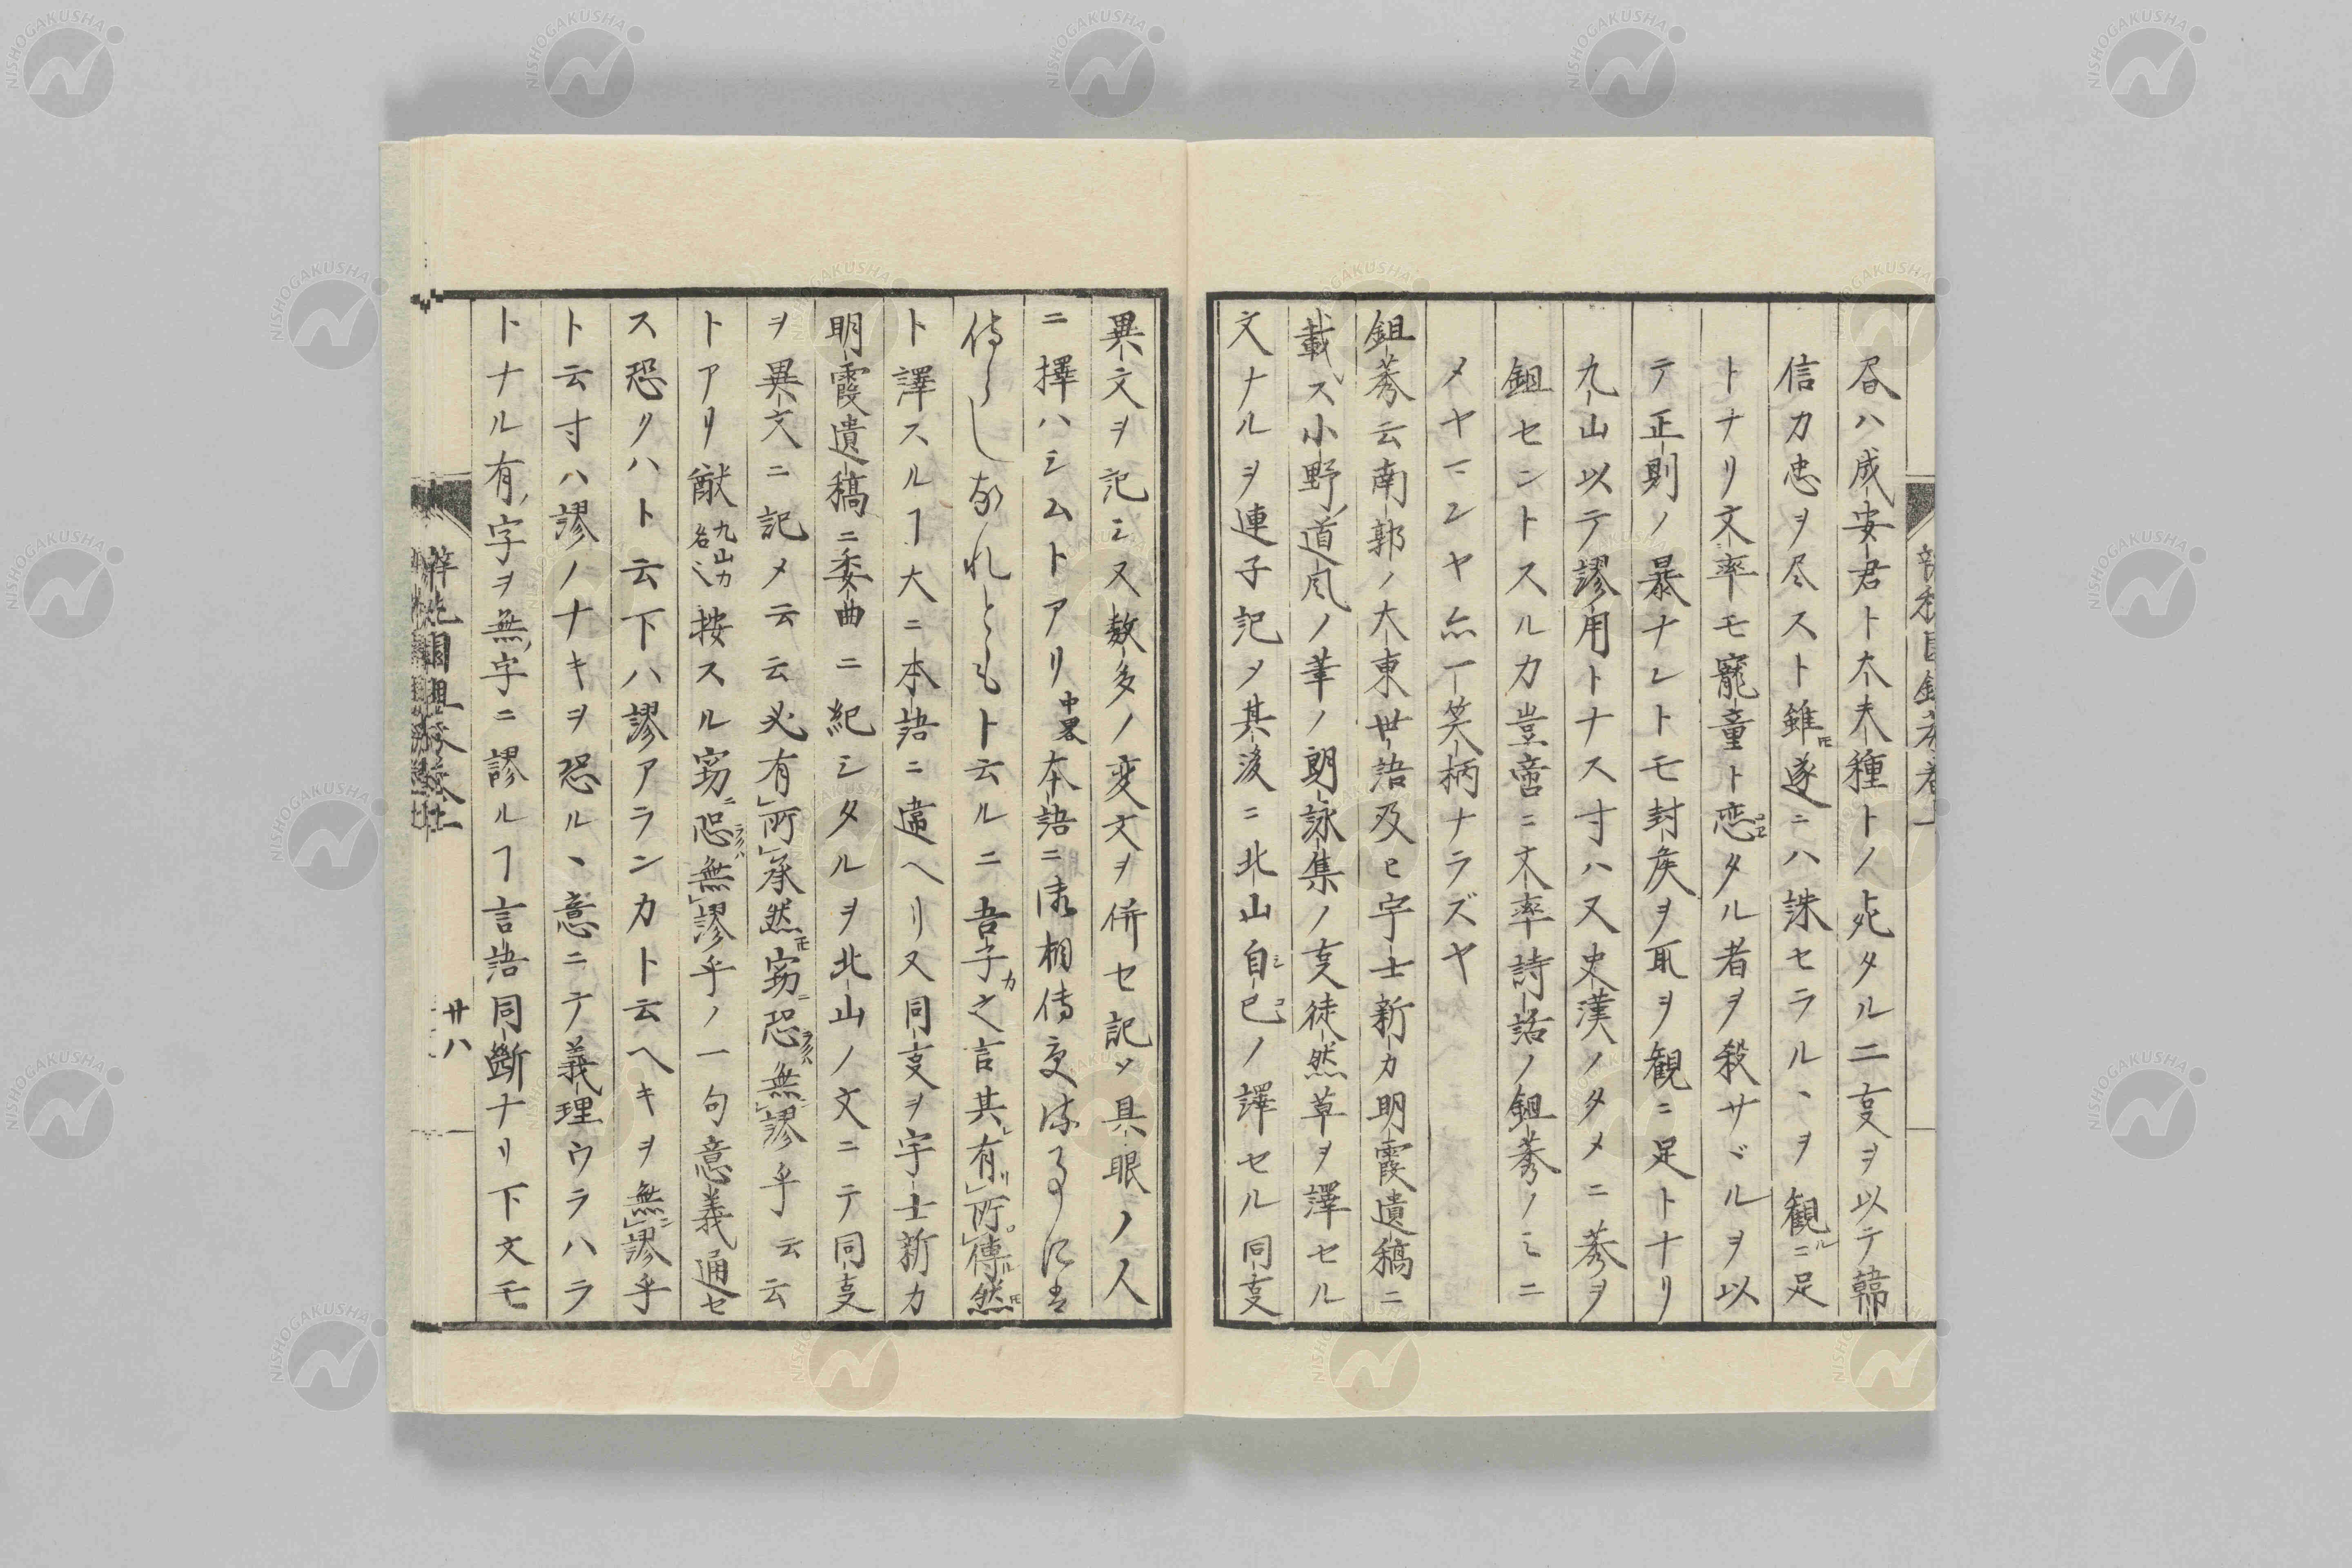 昏ハ成安君ト大夫種トノ上死タルニ叓ヲ以テ韓
信カ忠ヲ尽スト雖𪜈遂ニハ誅セラルヽヲ観ルニ足
トナリ文率モ寵童ト恋コヒタル者ヲ殺サヾルヲ以
テ正則ノ暴ナレトモ封矦ヲ取ヲ観ニ足トナリ
九山以テ謬用トナス寸ハ又史漢ノタメニ莠ヲ
鉏セントスルカ豈啻ニ文率詩話ノ鉏莠ノミニ
メヤマンヤ亦一笑柄ナラズヤ
鉏莠云南郭ノ大東世語及ヒ宇士新カ明霞遺稿ニ
載ス小野ノ道風ノ筆ノ朗詠集ノ叓徒然草ヲ譯セル
文ナルヲ連子記メ其後ニ北山自ミ己コノ譯セル同叓
異文ヲ記ミ又数多ノ変文ヲ併セ記メ具眼ノ人
ニ擇ハシムトアリ中畧本語ニ御相傳
侍らしなれともト云ルニ吾子カ之言其有リ所ロ傳ル然𪜈
ト譯スルヿ大ニ本語ニ違ヘリ又同叓ヲ宇士新カ
明霞遺稿ニ委曲ニ紀シタルヲ北山ノ文ニテ同叓
ヲ異文ニ記メ云云必有所承然𪜈窃ニ恐ラクハ無謬乎云云
トアリ猷九山カ名也按スル窃ニ恐ラクハ無謬乎ノ一句意義通セ
ス恐クハト云下ハ謬アランカト云ヘキヲ無ニ謬乎
ト云寸ハ謬ノナキヲ恐ルヽ意ニテ義理ウラハラ
トナル有ノ字ヲ無ノ字ニ謬ルヿ言語同斷ナリ下文モ
廿八